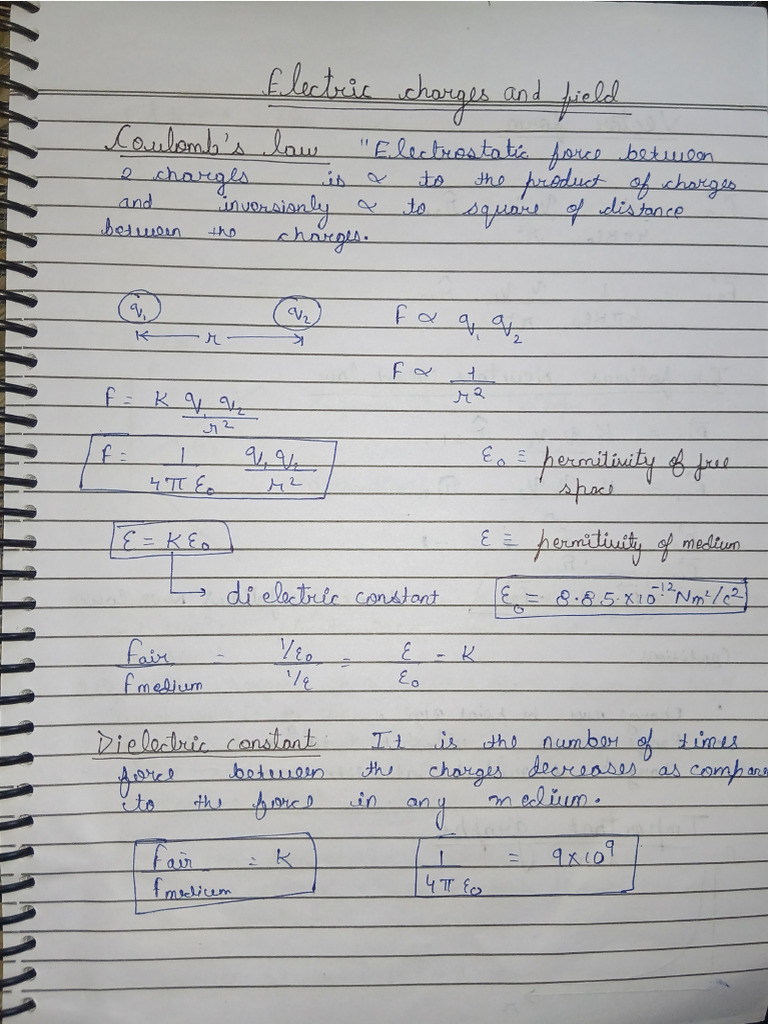 Electric charges and field
Coulomb's law "Electrostatic force between
2 charges is ∝ to the product of charges
and inversionly ∝ to square of distance
between the charges.
q₁ q₂ F ∝ q₁ q₂
r
F ∝ 1/r²
F = K q₁ q₂/r²
F = 1/4πε₀ q₁q₂/r² ε₀ ≡ permitivity of free
space
ε = Kε₀ ε ≡ permitivity of medium
di electric constant ε₀ = 8.85×10⁻¹² Nm²/c²
Fair/Fmedium = 1/ε₀/1/ε = ε/ε₀ = K
Dielectric constant It is the number of times
force between the charges decreases as compare
to the force in any medium.
Fair/Fmedium = K 1/4πε₀ = 9×10⁹